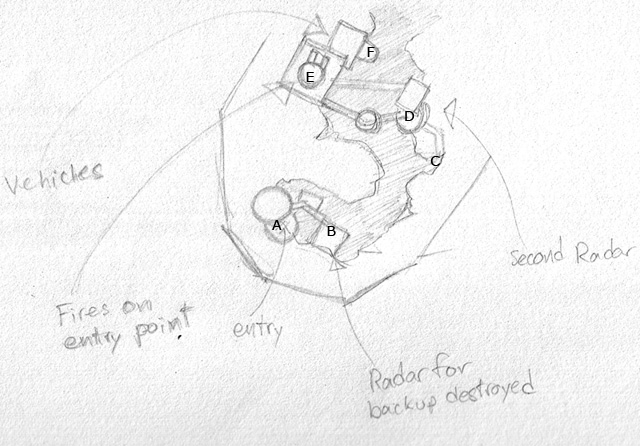 F
E
D
C
A
B
Vehicles
Second Radar
Fires on
entry point.
entry
Radar for
backup destroyed